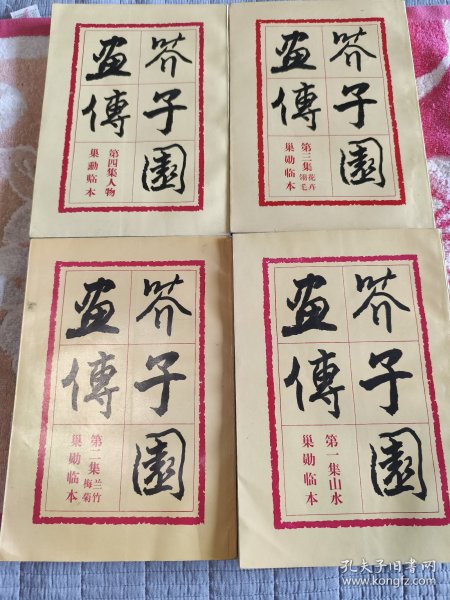 芥子園
畫傳
第四集人物
巢勳临本
芥子園
畫傳
第三集花卉翎毛
巢勋临本
芥子園
畫傳
第二集兰竹梅菊
巢勋临本
芥子園
畫傳
第一集山水
巢勋临本
孔夫子旧书网
www.kongfz.com